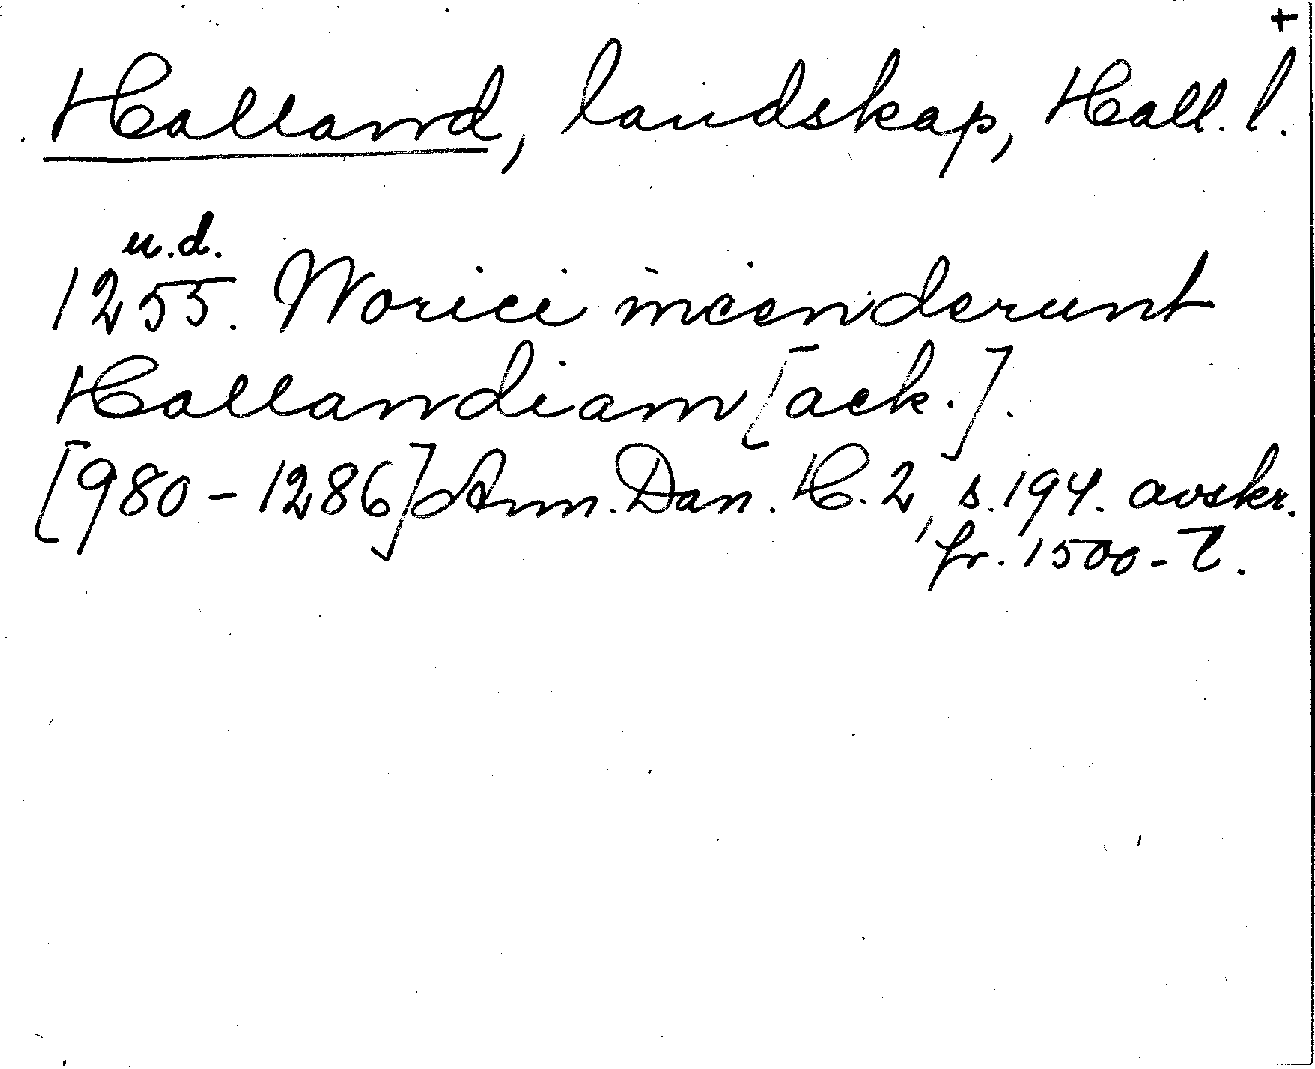 +
Halland, landskap, Hall. l.
u.d.
1255. Norici incenderunt
Hallandiam [ack.].
[980-1286] Ann. Dan. H. 2, s. 194. avskr.
fr. 1500-t.